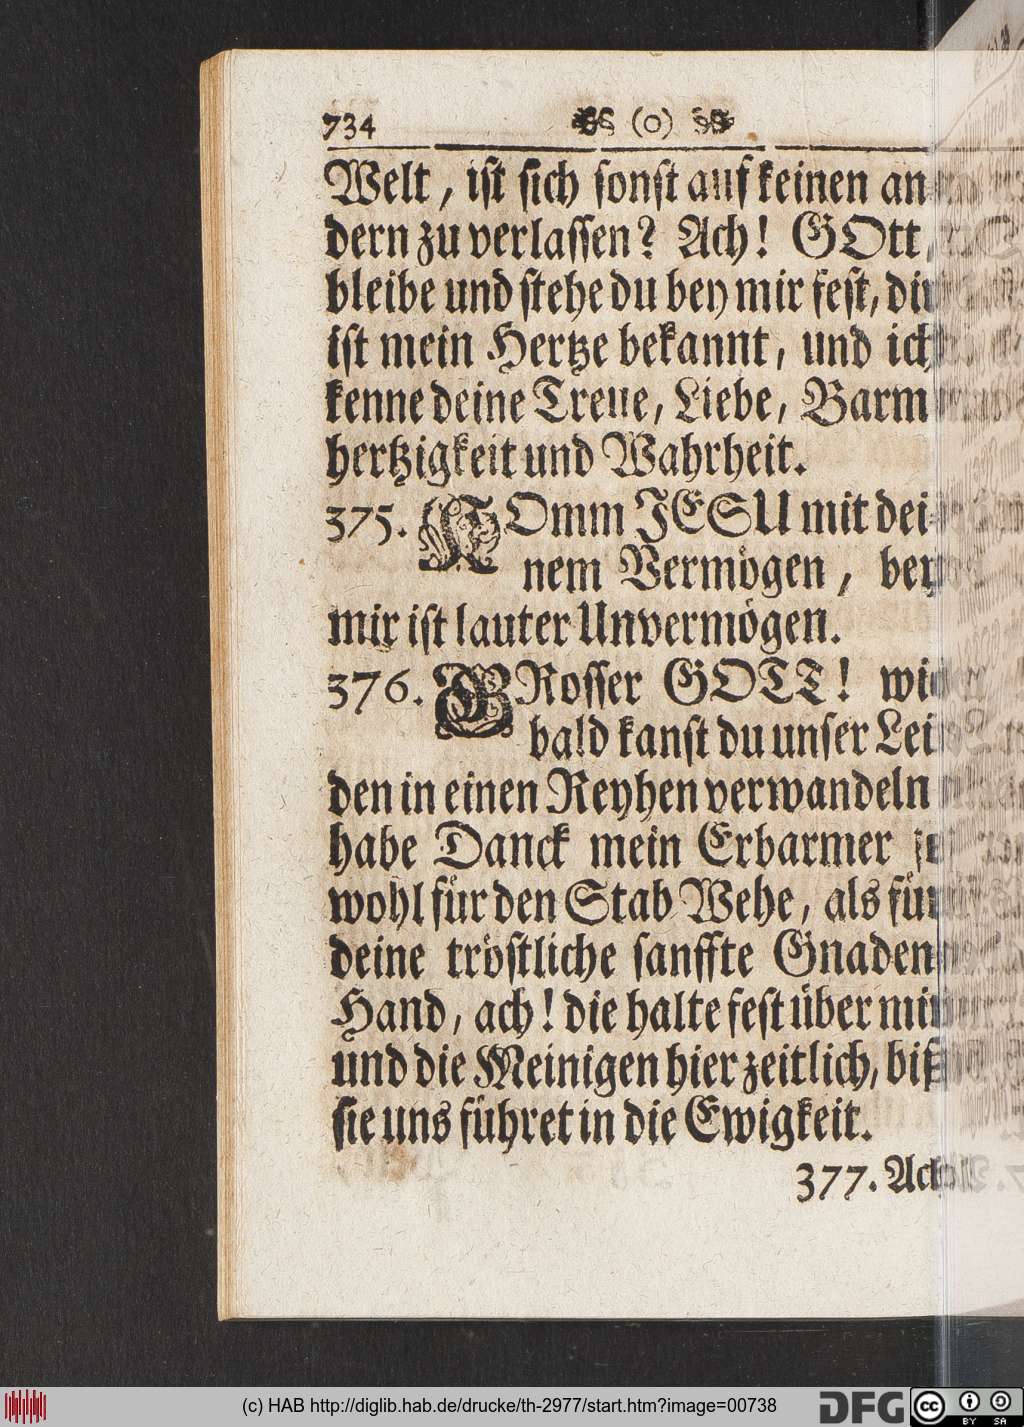 734 (o)
Welt, ist sich sonst auf keinen an
dern zu verlassen? Ach! GOtt,
bleibe und stehe du bey mir fest, dir
ist mein Hertze bekannt, und ich
kenne deine Treue, Liebe, Barm
hertzigkeit und Wahrheit.
375. KOmm JESU mit dei-
nem Vermögen, bey
mir ist lauter Unvermögen.
376. GRosser GOTT! wie
bald kanst du unser Lei
den in einen Reyhen verwandeln
habe Danck mein Erbarmer so
wohl für den Stab Wehe, als für
deine tröstliche sanffte Gnaden
Hand, ach! die halte fest über mir
und die Meinigen hier zeitlich, biß
sie uns führet in die Ewigkeit.
377. Ach
(c) HAB http://diglib.hab.de/drucke/th-2977/start.htm?image=00738
DFG
cc BY SA